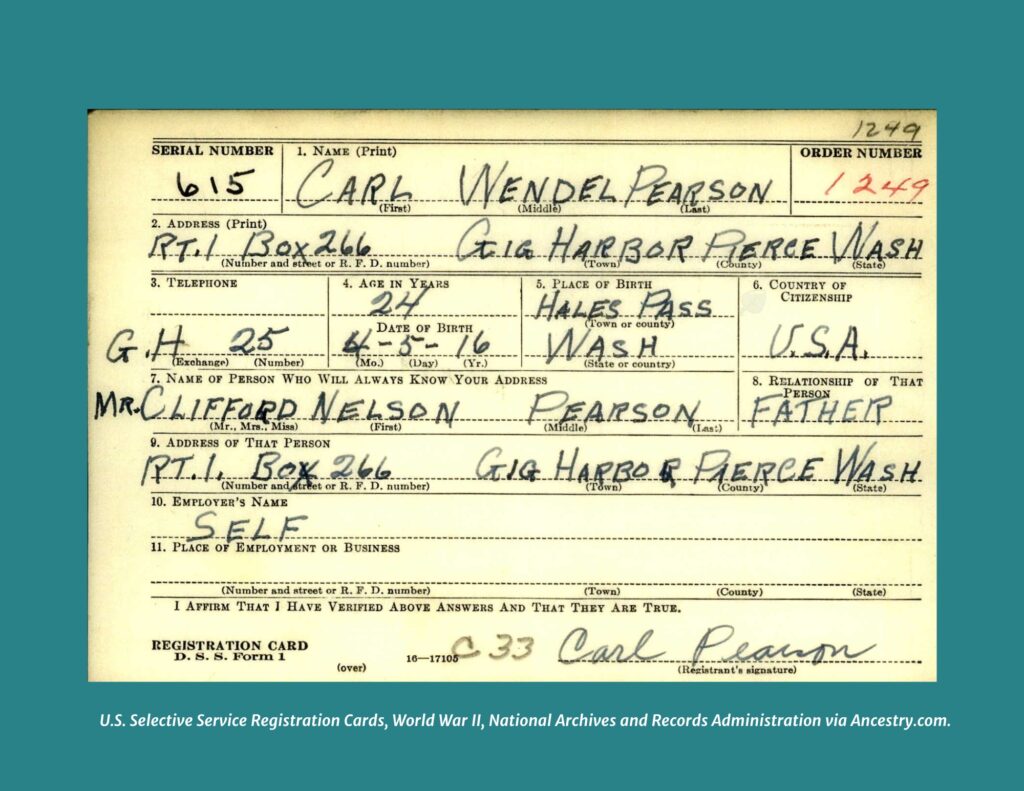 1249
SERIAL NUMBER 1. NAME (Print) ORDER NUMBER
615 CARL WENDEL PEARSON 1249
(First) (Middle) (Last)
2. ADDRESS (Print)
RT. 1 BOX 266 GIG HARBOR PIERCE WASH
(Number and street or R. F. D. number) (Town) (County) (State)
3. TELEPHONE 4. AGE IN YEARS 5. PLACE OF BIRTH 6. COUNTRY OF
CITIZENSHIP
24 HALES PASS
(Town or county)
DATE OF BIRTH
G.H 25 4-5-16 WASH U.S.A.
(Exchange) (Number) (Mo.) (Day) (Yr.) (State or country)
7. NAME OF PERSON WHO WILL ALWAYS KNOW YOUR ADDRESS 8. RELATIONSHIP OF THAT
PERSON
MR. CLIFFORD NELSON PEARSON FATHER
(Mr., Mrs., Miss) (First) (Middle) (Last)
9. ADDRESS OF THAT PERSON
RT. 1. BOX 266 GIG HARBOR PIERCE WASH
(Number and street or R. F. D. number) (Town) (County) (State)
10. EMPLOYER'S NAME
SELF
11. PLACE OF EMPLOYMENT OR BUSINESS
(Number and street or R. F. D. number) (Town) (County) (State)
I AFFIRM THAT I HAVE VERIFIED ABOVE ANSWERS AND THAT THEY ARE TRUE.
REGISTRATION CARD
D. S. S. Form 1 (over) 16—17105 C33 Carl Pearson
(Registrant's signature)
U.S. Selective Service Registration Cards, World War II, National Archives and Records Administration via Ancestry.com.